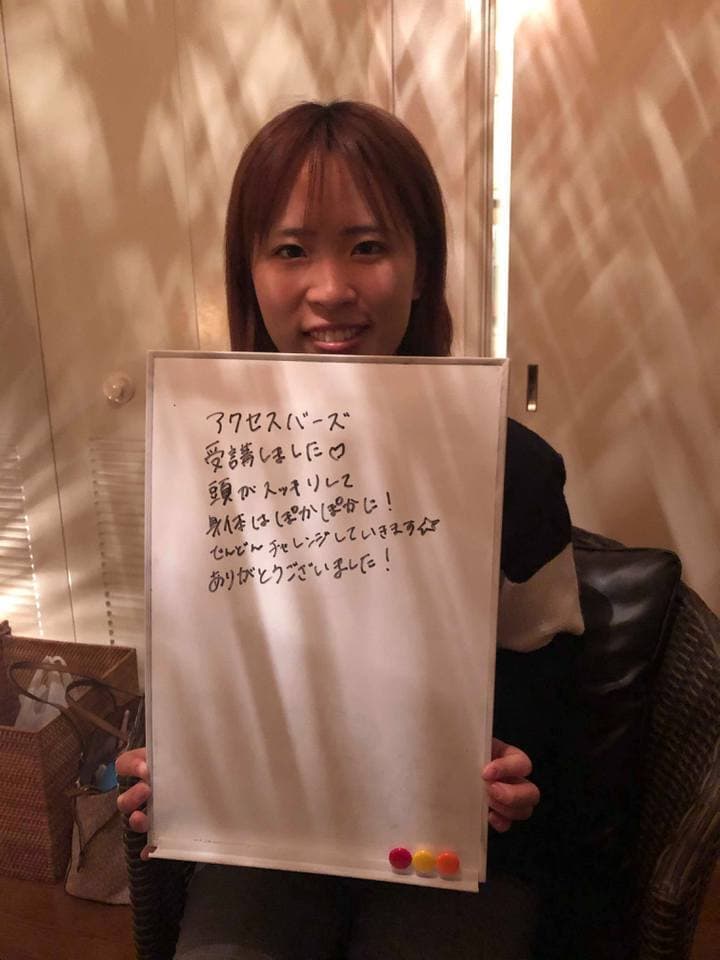 アクセスバーズ
受講しました♡
頭がスッキリして
身体はぽかぽかに!
どんどんチャレンジしていきます☆
ありがとうございました!